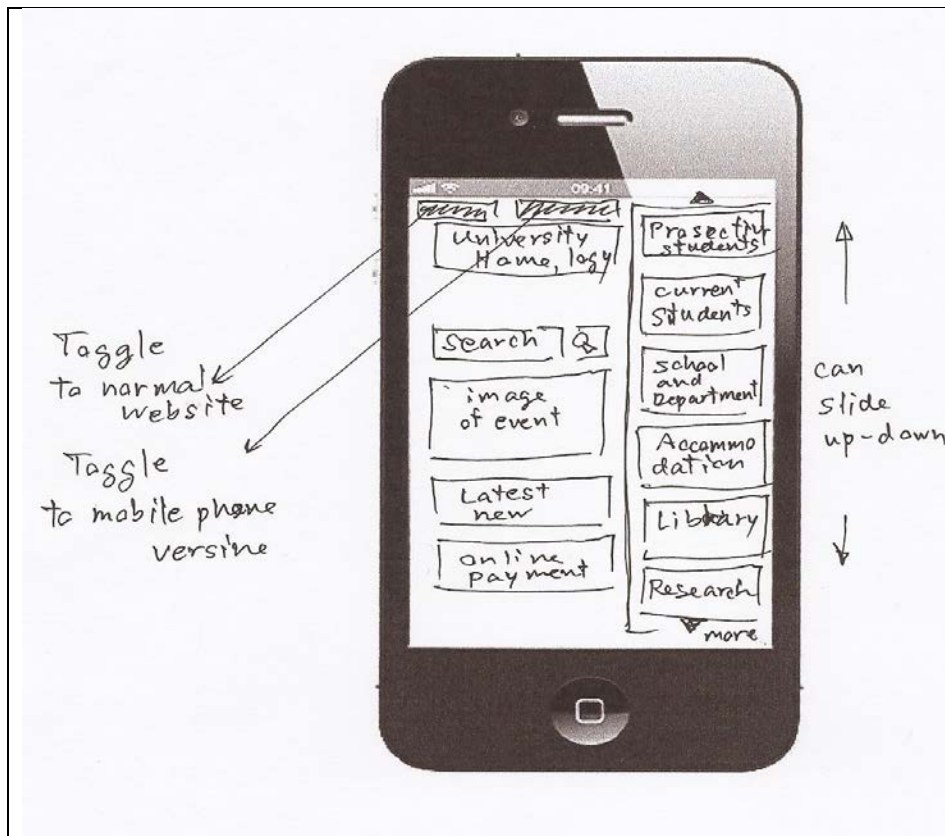 09:41
University
Home, logy
Search
image
of event
Latest
new
online
payment
Prosectiv
students
current
Students
school
and
Department
Accommo
dation
Library
Research
more
Toggle
to normal
website
Toggle
to mobile phone
versine
can
slide
up-down